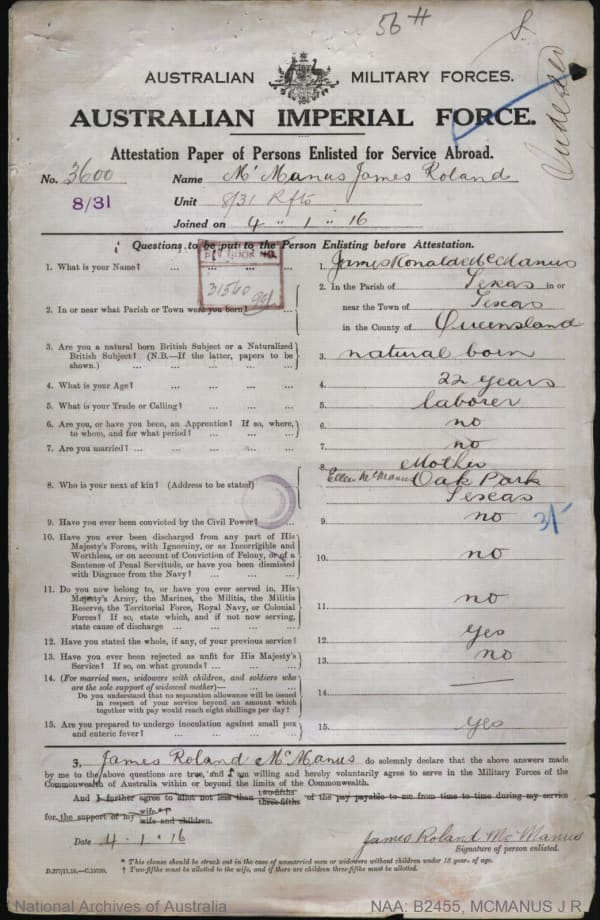 56 H
S.
AUSTRALIAN MILITARY FORCES.
AUSTRALIAN IMPERIAL FORCE.
Attestation Paper of Persons Enlisted for Service Abroad.
No. 3600 Name McManus James Roland
8/31 Unit 8/31 Rfts
Joined on 4 " 1 " 16
Questions to be put to the Person Enlisting before Attestation.
PAY BOOK NO.
31560
1. What is your Name? ... ... ... 1. James Ronald McManus
2. In or near what Parish or Town were you born? ... 2. In the Parish of Texas in or
near the Town of Texas
in the County of Queensland
3. Are you a natural born British Subject or a Naturalized
British Subject? (N.B.—If the latter, papers to be
shown.) ... ... ... ... ... 3. natural born
4. What is your Age? ... ... ... ... 4. 22 years
5. What is your Trade or Calling? ... ... ... 5. laborer
6. Are you, or have you been, an Apprentice? If so, where,
to whom, and for what period? ... ... ... 6. no
7. Are you married? ... ... ... ... ... 7. no
8. Who is your next of kin? (Address to be stated) ... 8. Mother
Ellen McManus Oak Park
Texas
9. Have you ever been convicted by the Civil Power? ... 9. no
10. Have you ever been discharged from any part of His
Majesty's Forces, with Ignominy, or as Incorrigible and
Worthless, or on account of Conviction of Felony, or of a
Sentence of Penal Servitude, or have you been dismissed
with Disgrace from the Navy? ... ... ... 10. no
11. Do you now belong to, or have you ever served in, His
Majesty's Army, the Marines, the Militia, the Militia
Reserve, the Territorial Force, Royal Navy, or Colonial
Forces? If so, state which, and if not now serving,
state cause of discharge ... ... ... ... 11. no
12. Have you stated the whole, if any, of your previous service? 12. yes
13. Have you ever been rejected as unfit for His Majesty's
Service? If so, on what grounds? ... ... ... 13. no
14. (For married men, widowers with children, and soldiers who
are the sole support of widowed mother)—
Do you understand that no separation allowance will be issued
in respect of your service beyond an amount which
together with pay would reach eight shillings per day? 14. —
15. Are you prepared to undergo inoculation against small pox
and enteric fever? ... ... ... ... 15. yes
I, James Roland McManus do solemnly declare that the above answers made
by me to the above questions are true, and I am willing and hereby voluntarily agree to serve in the Military Forces of the
Commonwealth of Australia within or beyond the limits of the Commonwealth.
And I further agree to allot not less than two-fifths three-fifths of the pay payable to me from time to time during my service
for the support of my wife wife and children.
Date 4 . 1 . 16 James Roland McManus
Signature of person enlisted.
* This clause should be struck out in the case of unmarried men or widowers without children under 18 years of age.
† Two-fifths must be allotted to the wife, and if there are children three-fifths must be allotted.
National Archives of Australia NAA: B2455, MCMANUS J R